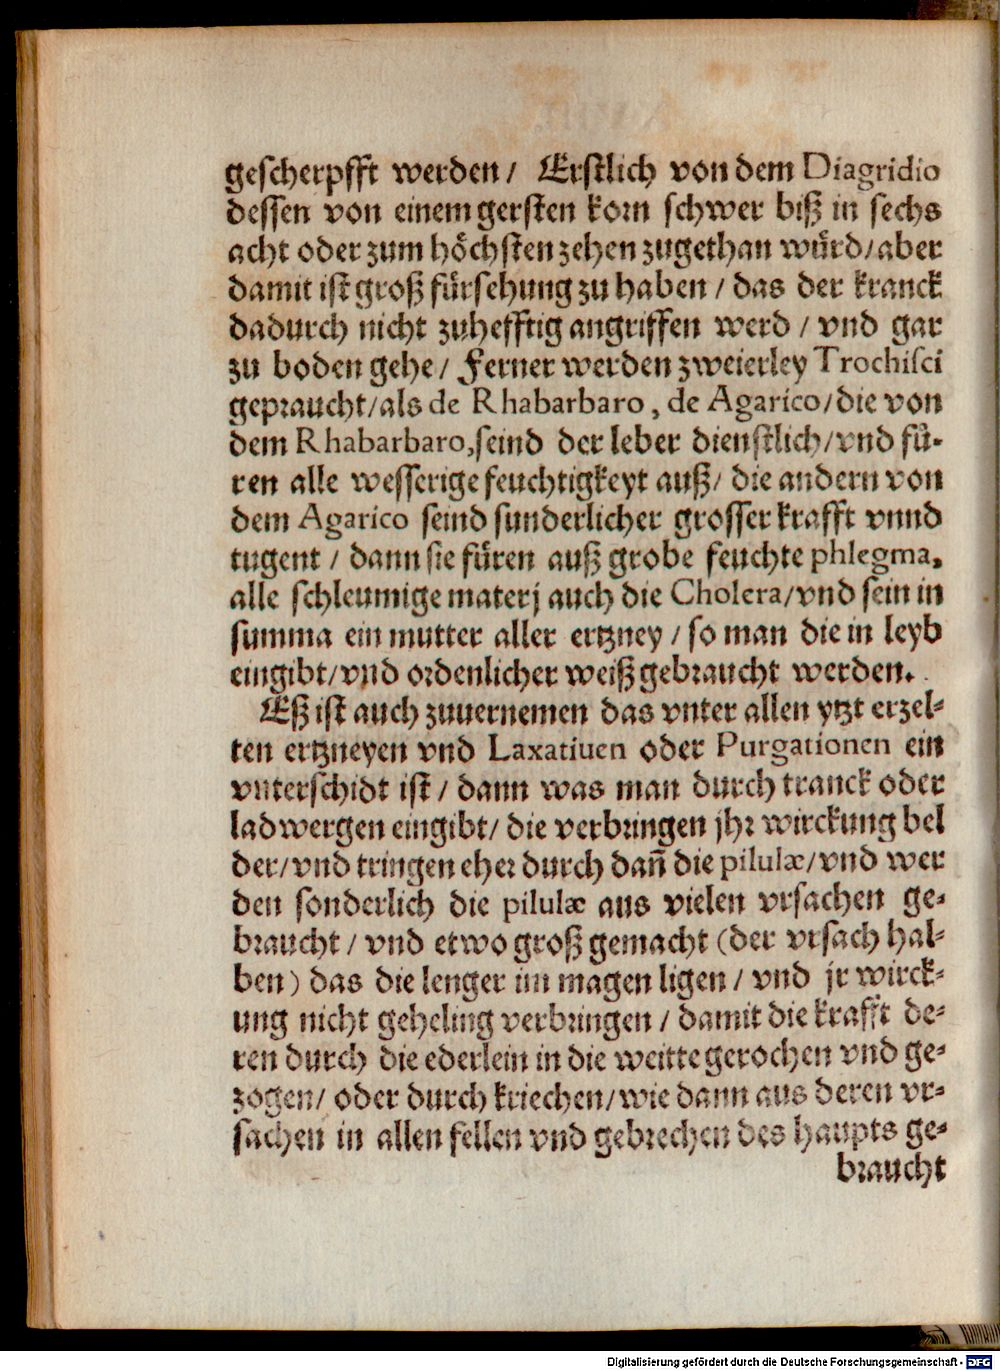 gescherpfft werden / Erstlich von dem Diagridio
dessen von einem gersten korn schwer biß in sechs
acht oder zum hoͤchsten zehen zugethan wuͤrd/aber
damit ist groß fuͤrsehung zu haben / das der kranck
dadurch nicht zuhefftig angriffen werd / vnd gar
zu boden gehe / Ferner werden zweierley Trochisci
gepraucht/als de Rhabarbaro, de Agarico/die von
dem Rhabarbaro,seind der leber dienstlich/vnd fuͤ-
ren alle wesserige feuchtigkeyt auß/ die andern von
dem Agarico seind sunderlicher grosser krafft vnnd
tugent / dann sie fuͤren auß grobe feuchte phlegma,
alle schleumige materj auch die Cholera/vnd sein in
summa ein mutter aller ertzney / so man die in leyb
eingibt/vnd ordenlicher weiß gebraucht werden.
Eß ist auch zuuernemen das vnter allen ytzt erzel-
ten ertzneyen vnd Laxatiuen oder Purgationen ein
vnterschidt ist / dann was man durch tranck oder
ladwergen eingibt/ die verbringen jhr wirckung bel
der/vnd tringen eher durch dañ die pilulæ/vnd wer
den sonderlich die pilulæ aus vielen vrsachen ge-
braucht / vnd etwo groß gemacht (der vrsach hal-
ben) das die lenger im magen ligen / vnd jr wirck-
ung nicht geheling verbringen / damit die krafft de-
ren durch die ederlein in die weitte gerochen vnd ge-
zogen/ oder durch kriechen/wie dann aus deren vr-
sachen in allen fellen vnd gebrechen des haupts ge-
braucht
Digitalisierung gefördert durch die Deutsche Forschungsgemeinschaft - DFG